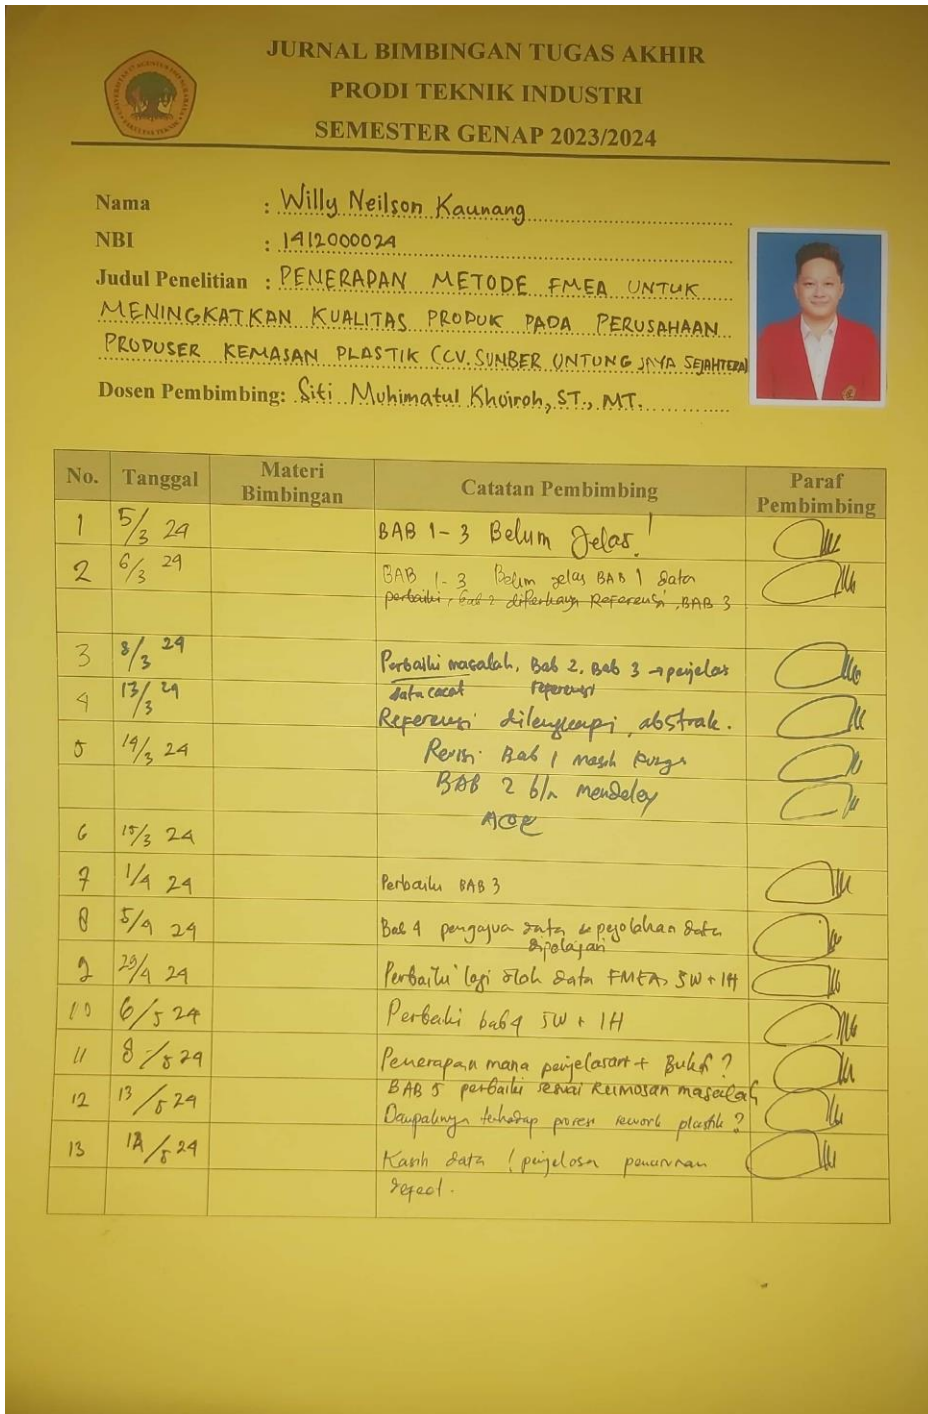 JURNAL BIMBINGAN TUGAS AKHIR
PRODI TEKNIK INDUSTRI
SEMESTER GENAP 2023/2024
Nama : Willy Neilson Kaunang
NBI : 1412000024
Judul Penelitian : PENERAPAN METODE FMEA UNTUK
MENINGKATKAN KUALITAS PRODUK PADA PERUSAHAAN
PRODUSER KEMASAN PLASTIK (CV. SUMBER UNTUNG JAYA SEJAHTERA)
Dosen Pembimbing: Siti Muhimatul Khoiroh, ST., MT.
No. Tanggal Materi Bimbingan Catatan Pembimbing Paraf Pembimbing
1 5/3 24 BAB 1-3 Belum Jelas!
2 6/3 24 BAB 1-3 Belum jelas BAB 1 data
perbaiki, Bab 2 diperkaya Referensi, BAB 3
3 8/3 24 Perbaiki masalah, Bab 2, Bab 3 → penjelas
data cacat referensi
4 13/3 24 Referensi dilengkapi, abstrak.
5 14/3 24 Revisi Bab 1 masih
BAB 2 Mendeley
ACC
6 15/3 24
7 1/4 24 Perbaiki BAB 3
8 5/4 24 Bab 4 data pengolahan data
dipelajari
9 29/4 24 Perbaiki lagi olah data FMEA, 5W + 1H
10 6/5 24 Perbaiki bab 4 5W + 1H
11 8/5 24 Penerapan mana penjelasan + Bukti?
BAB 5 perbaiki sesuai Rumusan masalah
12 13/5 24 Dampaknya terhadap proses rework plastik?
13 14/5 24 Kasih data / penjelasan penurunan
defect.